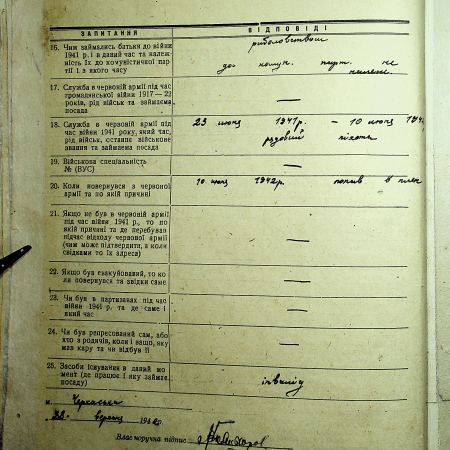 ЗАПИТАННЯ ВІДПОВІДІ
16. Чим займались батьки до війни
1941 р. і в даний час та належ-
ність їх до комуністичної пар-
тії і з якого часу
риболовством
до комун. парт. не
належ.
17. Служба в червоній армії під час
громадянської війни 1917—22
років, рід військ та займаєма
посада
—
18. Служба в червоній армії під
час війни 1941 року, який час,
рід військ, останнє військове
звання та займаєма посада
23 июня 1941р. – 10 июня 194
рядовий піхота
19. Військова спеціальність
№ (ВУС)
—
20. Коли повернувся з червоної
армії та по якій причині
10 июня 1942р. попав в плен
21. Якщо не був в червоній армії
під час війни 1941 р., то по
якій причині та де перебував
підчас відходу червоної армії
(чим може підтвердити, а коли
свідками то їх адреса)
—
22. Якщо був евакуйований, то ко-
ли повернувся та звідки саме
—
23. Чи був в партизанах під час
війни 1941 р. та де саме і
який час
—
24. Чи був репресований сам, або
хто з родичів, коли і за що, яку
мав кару та чи відбув її
—
25. Засоби існування в даний мо-
мент (де працює і яку займає
посаду)
інвалід
м.
22 194
Власноручна підпис